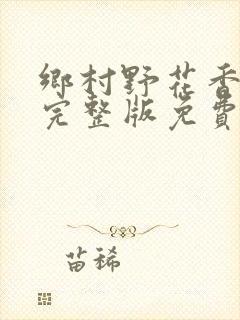 鄉村野花香
完整版免費
苗稀